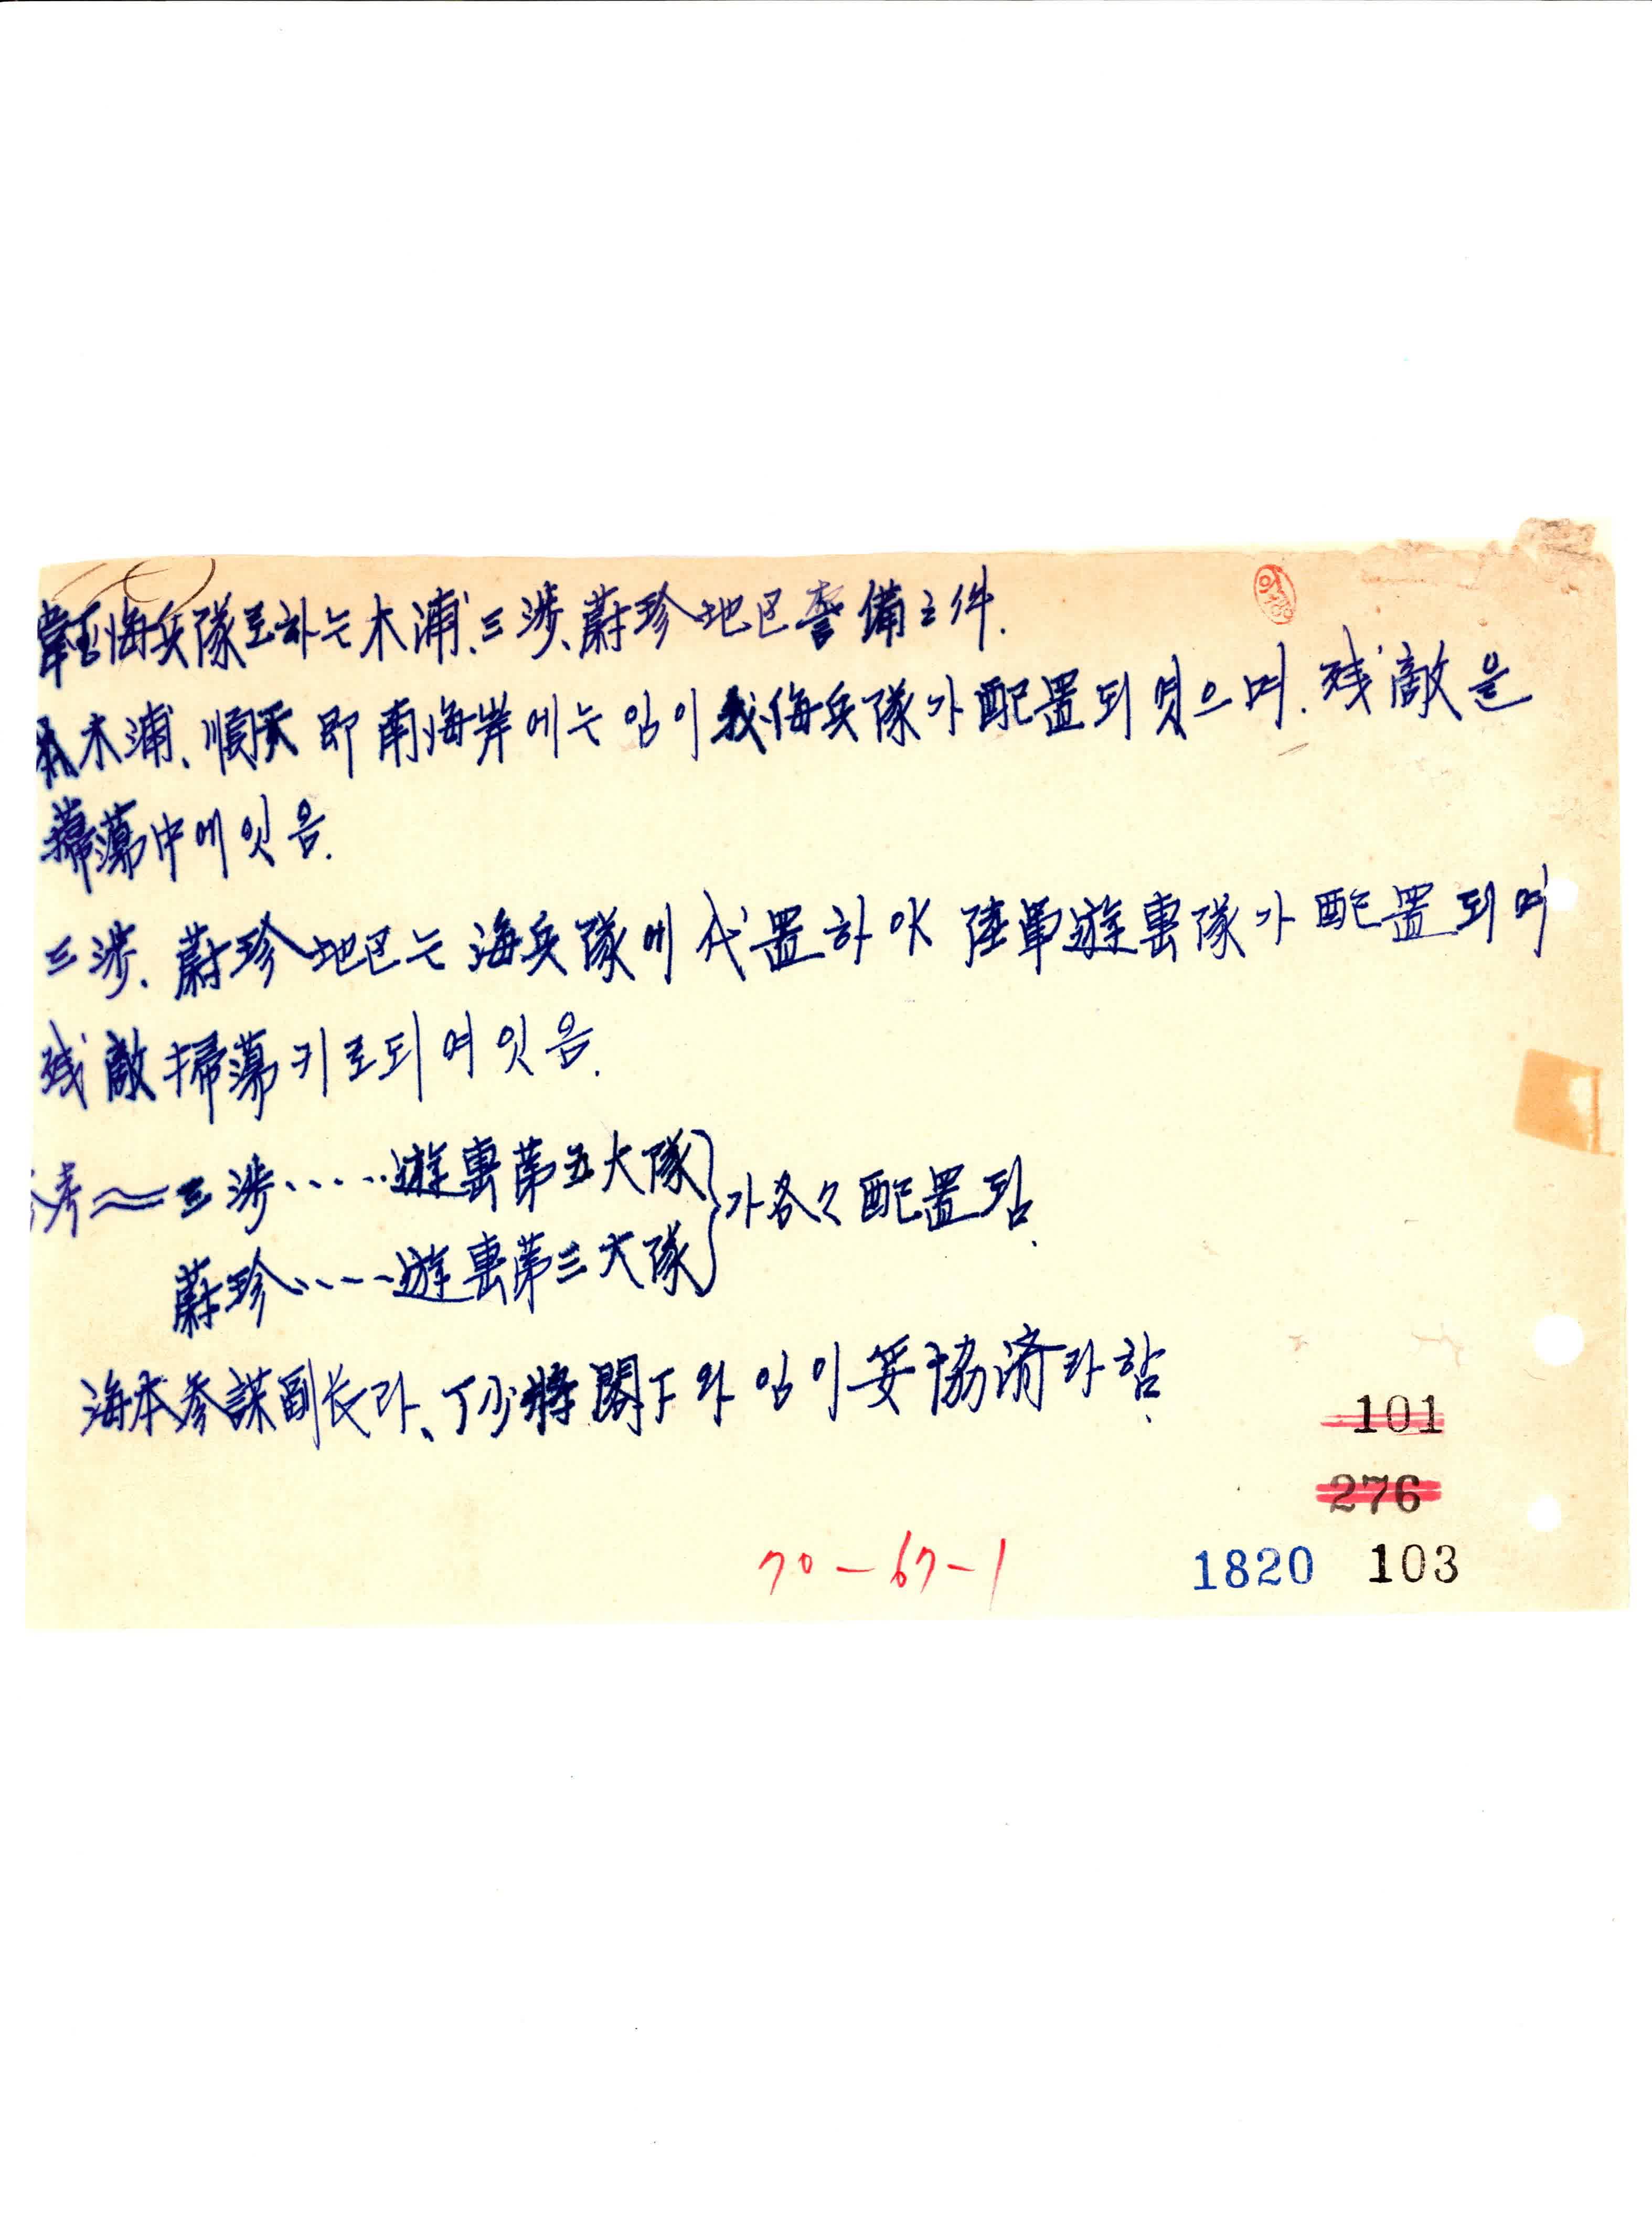 海兵隊로하는木浦、三涉、蔚珍地区警備之件.
木浦、順天即南海岸에는임이我海兵隊가配置되엿으며.残敵은
掃蕩中에잇음.
三涉、蔚珍地区는海兵隊에代置하야陸軍遊擊隊가配置되며
残敵掃蕩키로되여잇음.
参考 三涉.....遊擊第五大隊
蔚珍.....遊擊第三大隊
가各々配置됨.
海本参謀副长라、丁少將閣下와임이妥協済라함.
101
276
70-67-1
1820 103